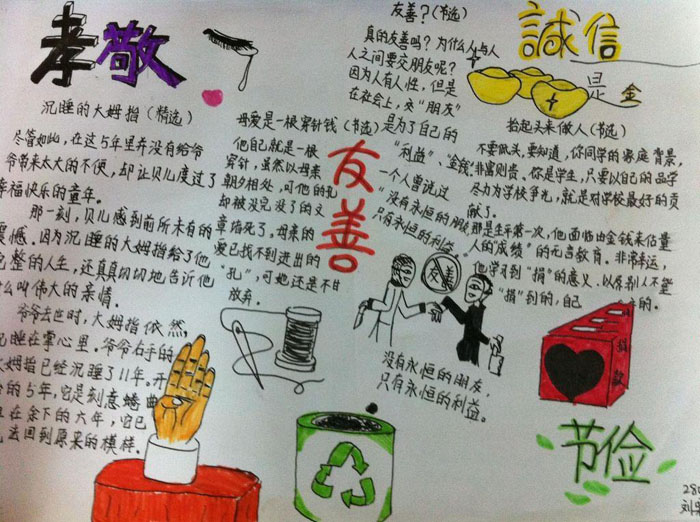 孝敬
沉睡的大姆指（精选）
尽管如此，在这5年里并没有给爷
爷带来太大的不便，却让贝儿度过了
幸福快乐的童年。
那一刻，贝儿感到前所未有的
震憾。因为沉睡的大姆指给了他
完整的人生，还真真切切地告诉他
什么叫伟大的亲情。
爷爷去世时，大姆指依然
沉睡在掌心里。爷爷右手的
大姆指已经沉睡了11年。开
的5年，它是刻意蜷曲
在余下的六年，它已
去回到原来的模样。
母爱是一根穿针钱（节选）
他自己就是一根
穿针，虽然以母亲
朝夕相处，可他的孔
却被没完没了的文
章堵死了，母亲的
爱已找不到进出的
“孔”，可她还是不甘
放弃。
友善？（节选）
真的友善吗？为什么人与人
人之间要交朋友呢？
因为人有人性，但是
在社会上，交“朋友”
是为了自己的
“利益”、“金钱”
一个人曾说过
“没有永恒的朋友
只有永恒的利益。”
友善
友善
没有永恒的朋友，
只有永恒的利益。
誠信
是金
抬起头来做人（节选）
不要低头，要知道，你同学的家庭背景，
非富则贵。你是学生，只要以自己的品学
尽力为学校争光，就是对学校最好的贡
献了。
那是生平第一次，他面临由金钱来估量
人的“成绩”的无言教育。非常幸运，
他学习到“捐”的意义，以及别人不望
“捐”到的，自己
的。
捐款
节俭